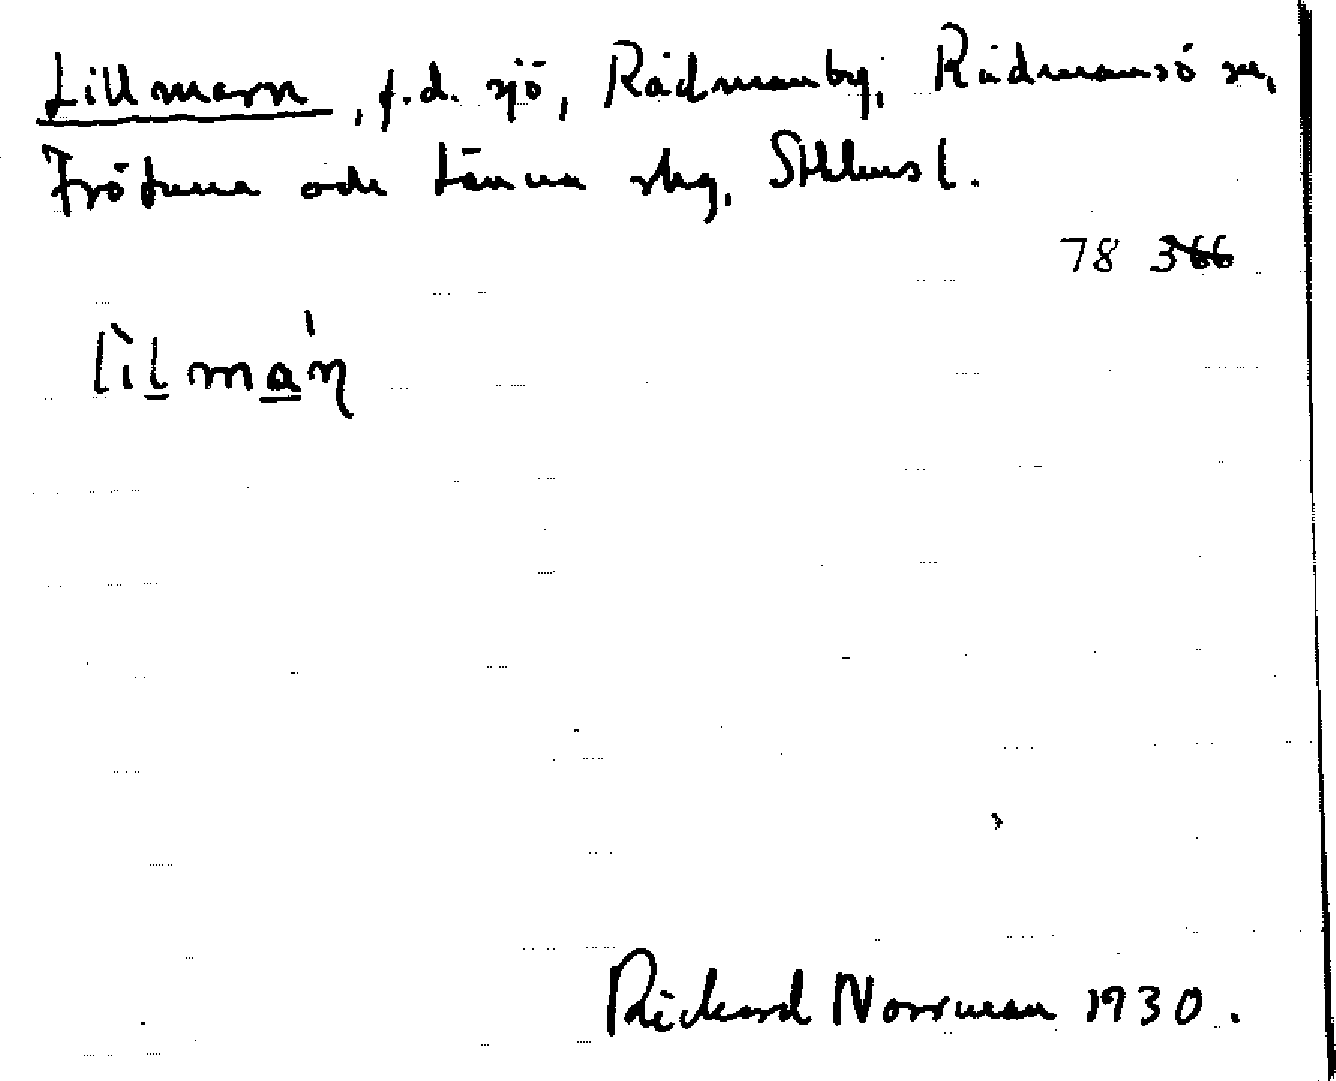 Lillmarn, f.d. sjö, Rådmanby, Rådmansö sn,
Frötuna och Länna skg, Sthlms l.
78 366
lìlmáṇ
Rickard Norrman 1930.